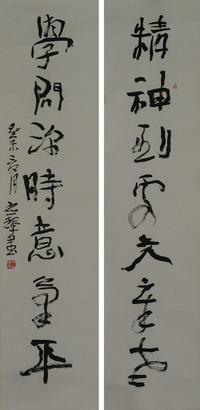 精神到處文章老
學問深時意氣平
癸未夏月